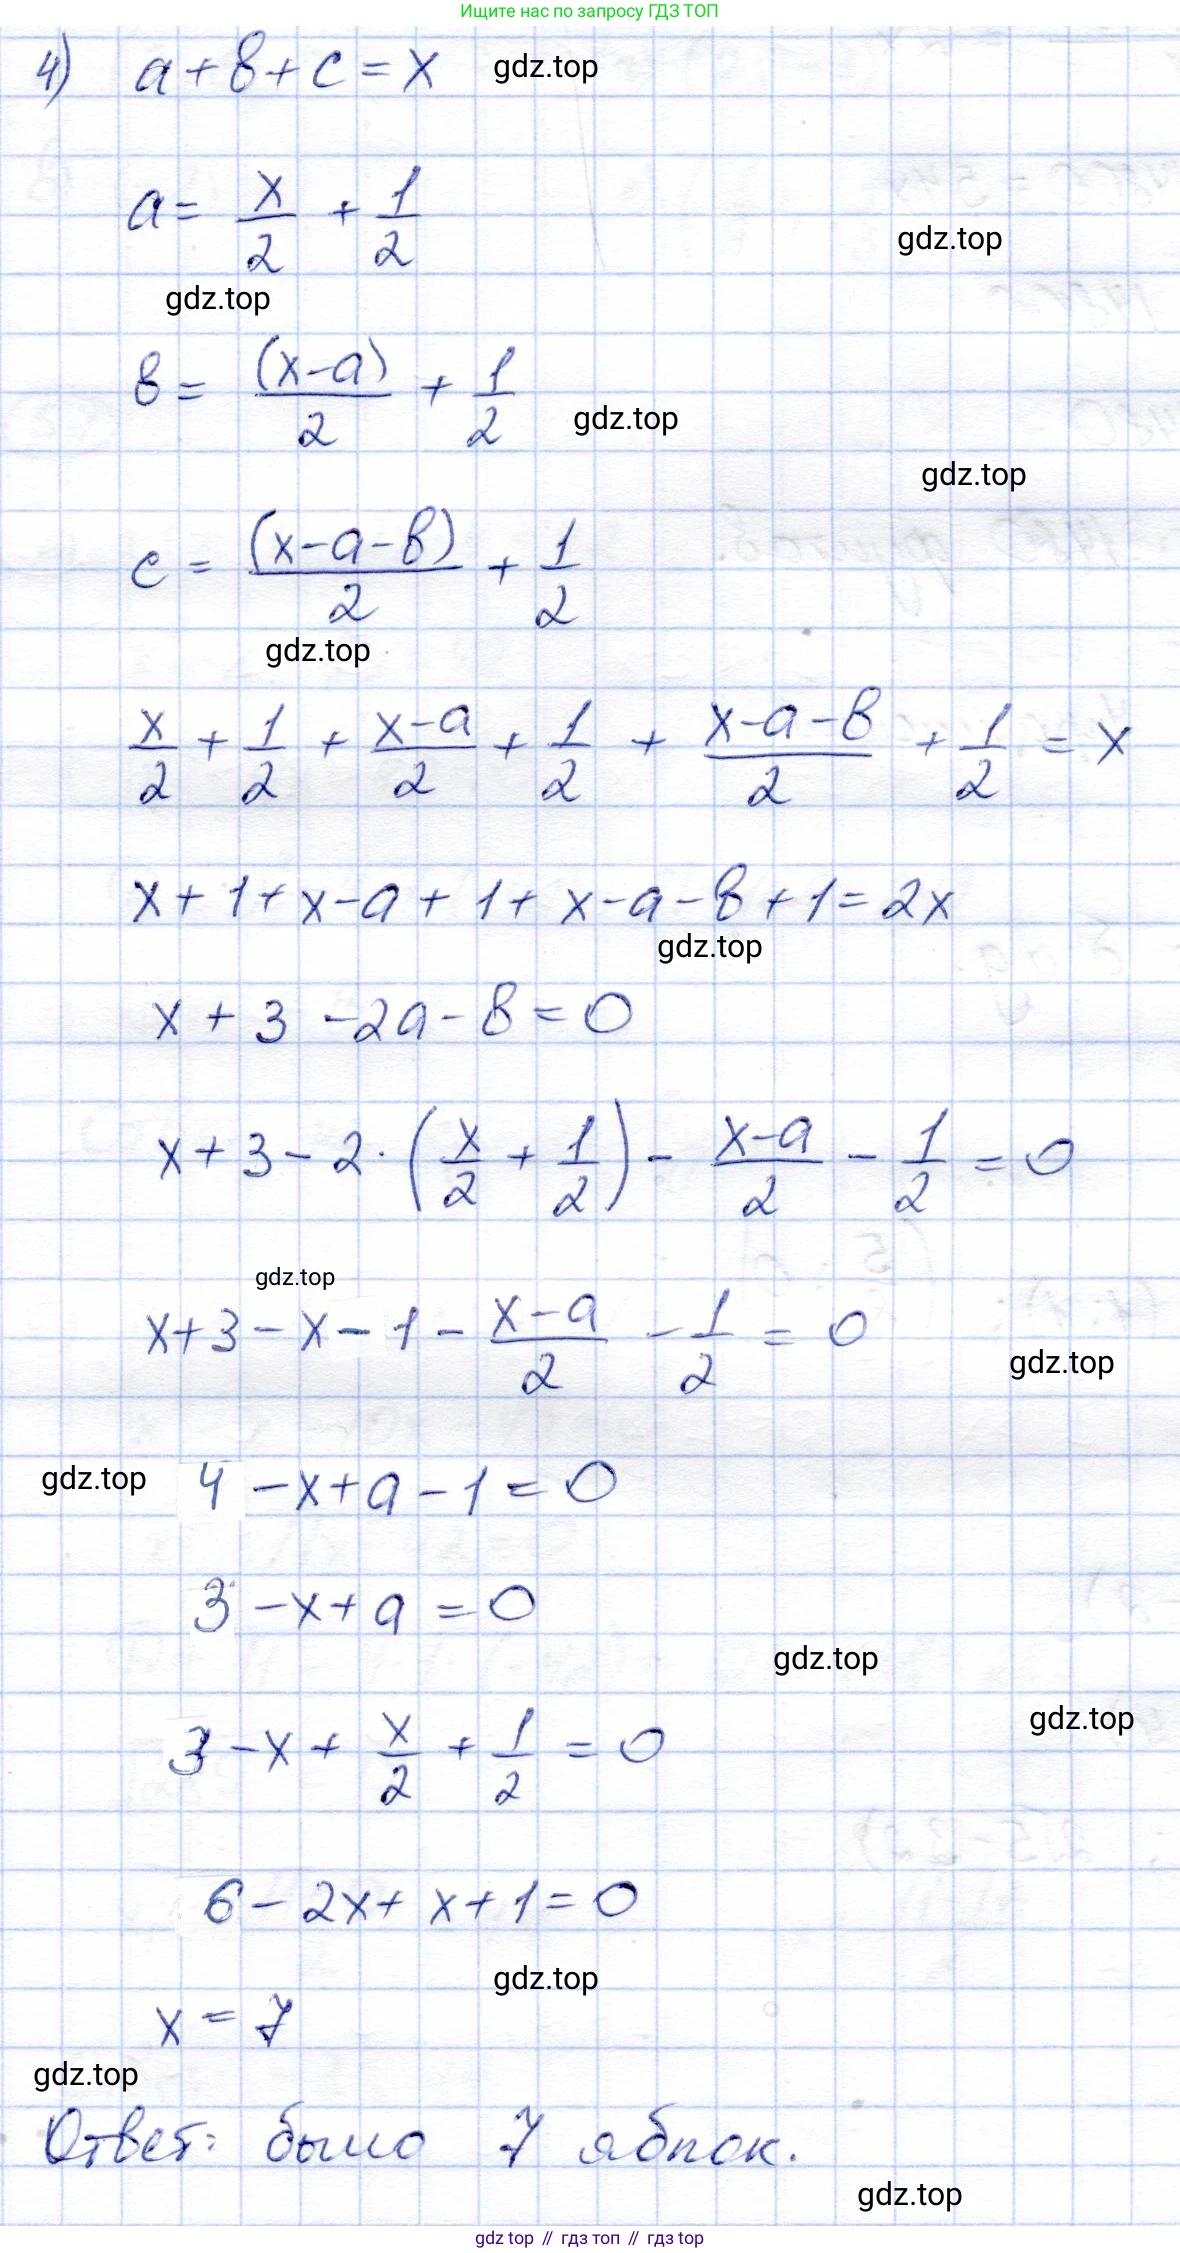 Ищите нас по запросу ГДЗ ТОП
4) a+b+c=x gdz.top
a = x/2 + 1/2
gdz.top
gdz.top
b = (x-a)/2 + 1/2
gdz.top
gdz.top
c = (x-a-b)/2 + 1/2
gdz.top
x/2 + 1/2 + x-a/2 + 1/2 + x-a-b/2 + 1/2 = x
x+1+x-a+1+x-a-b+1=2x
gdz.top
x+3-2a-b=0
x+3-2·(x/2+1/2)-x-a/2-1/2=0
gdz.top
x+3-x-1-x-a/2-1/2=0
gdz.top
gdz.top 4-x+a-1=0
3-x+a=0
gdz.top
gdz.top
3-x+x/2+1/2=0
6-2x+x+1=0
gdz.top
x=7
gdz.top
Ответ: было 7 яблок.
gdz.top
gdz top // гдз топ // гдз top